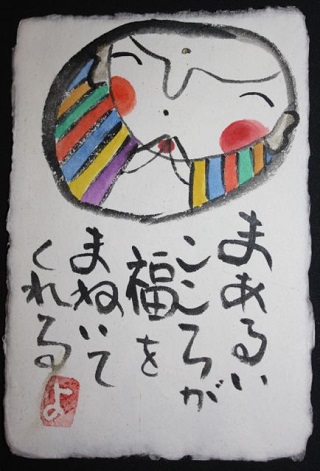 まあるい
こころが
福を
まねいて
くれる
よ